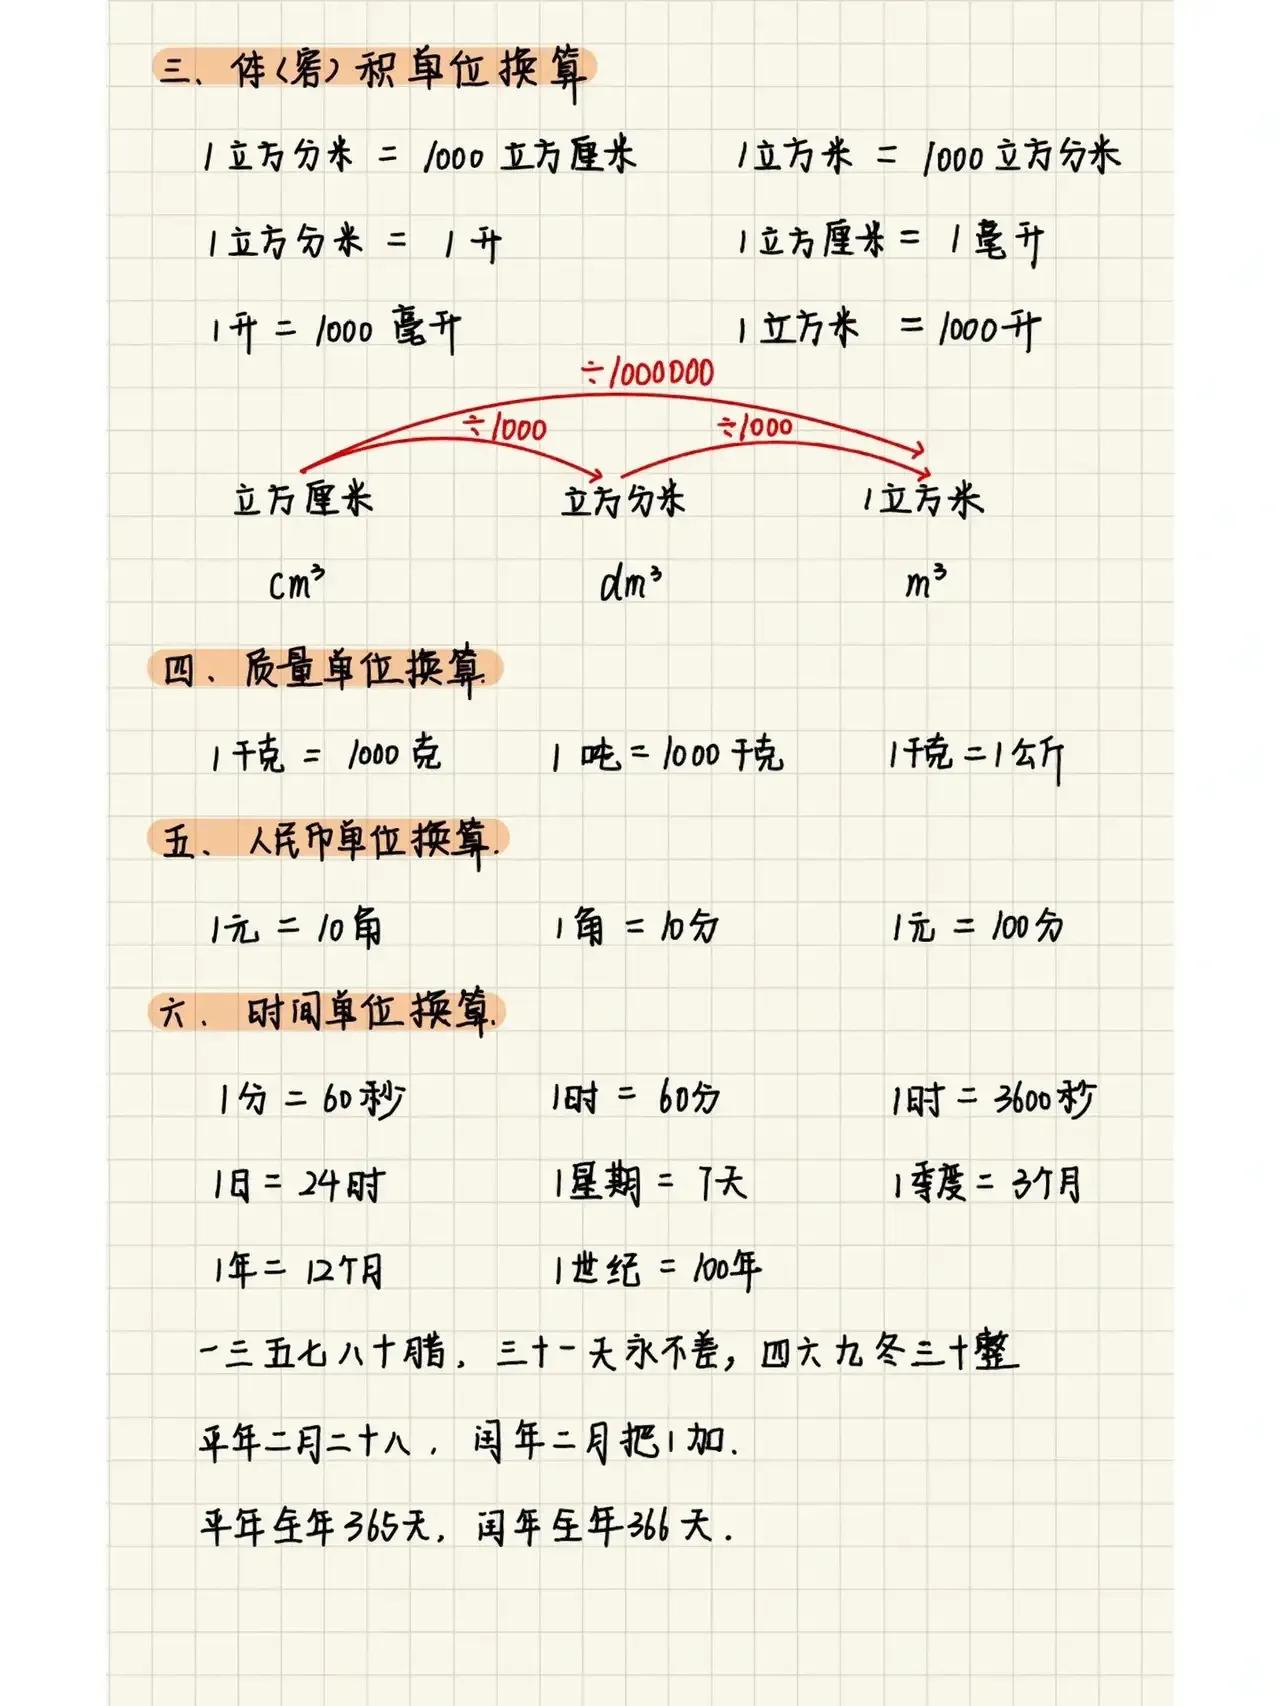 三、体(容)积单位换算
1立方分米 = 1000立方厘米 1立方米 = 1000立方分米
1立方分米 = 1升 1立方厘米 = 1毫升
1升 = 1000毫升 1立方米 = 1000升
÷1000000
÷1000 ÷1000
立方厘米 立方分米 1立方米
cm³ dm³ m³
四、质量单位换算.
1千克 = 1000克 1吨 = 1000千克 1千克 = 1公斤
五、人民币单位换算.
1元 = 10角 1角 = 10分 1元 = 100分
六、时间单位换算.
1分 = 60秒 1时 = 60分 1时 = 3600秒
1日 = 24时 1星期 = 7天 1季度 = 3个月
1年 = 12个月 1世纪 = 100年
一三五七八十腊，三十一天永不差，四六九冬三十整
平年二月二十八，闰年二月把1加.
平年全年365天，闰年全年366天.